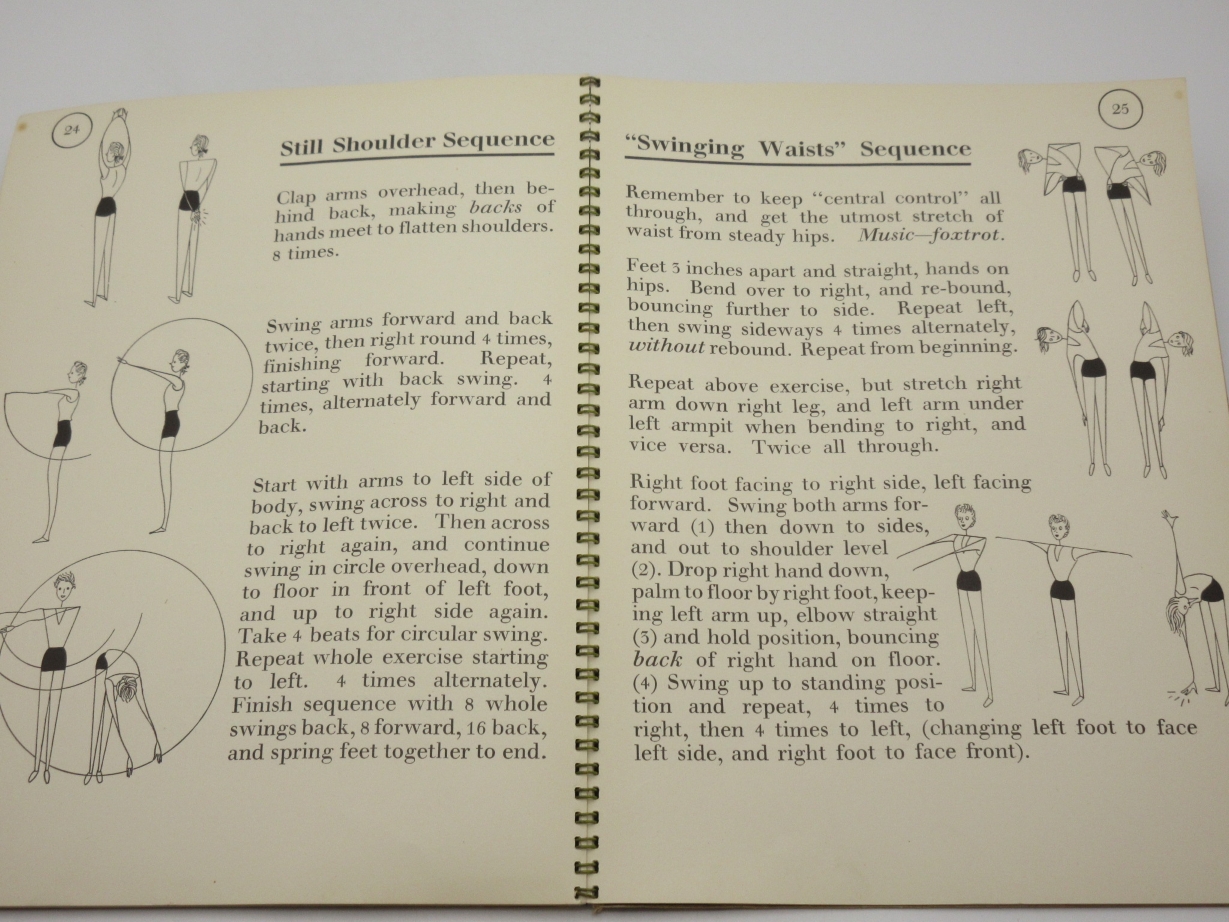 24
Still Shoulder Sequence
Clap arms overhead, then be-
hind back, making backs of
hands meet to flatten shoulders.
8 times.
Swing arms forward and back
twice, then right round 4 times,
finishing forward. Repeat,
starting with back swing. 4
times, alternately forward and
back.
Start with arms to left side of
body, swing across to right and
back to left twice. Then across
to right again, and continue
swing in circle overhead, down
to floor in front of left foot,
and up to right side again.
Take 4 beats for circular swing.
Repeat whole exercise starting
to left. 4 times alternately.
Finish sequence with 8 whole
swings back, 8 forward, 16 back,
and spring feet together to end.
25
“Swinging Waists” Sequence
Remember to keep “central control” all
through, and get the utmost stretch of
waist from steady hips. Music—foxtrot.
Feet 3 inches apart and straight, hands on
hips. Bend over to right, and re-bound,
bouncing further to side. Repeat left,
then swing sideways 4 times alternately,
without rebound. Repeat from beginning.
Repeat above exercise, but stretch right
arm down right leg, and left arm under
left armpit when bending to right, and
vice versa. Twice all through.
Right foot facing to right side, left facing
forward. Swing both arms for-
ward (1) then down to sides,
and out to shoulder level
(2). Drop right hand down,
palm to floor by right foot, keep-
ing left arm up, elbow straight
(3) and hold position, bouncing
back of right hand on floor.
(4) Swing up to standing posi-
tion and repeat, 4 times to
right, then 4 times to left, (changing left foot to face
left side, and right foot to face front).